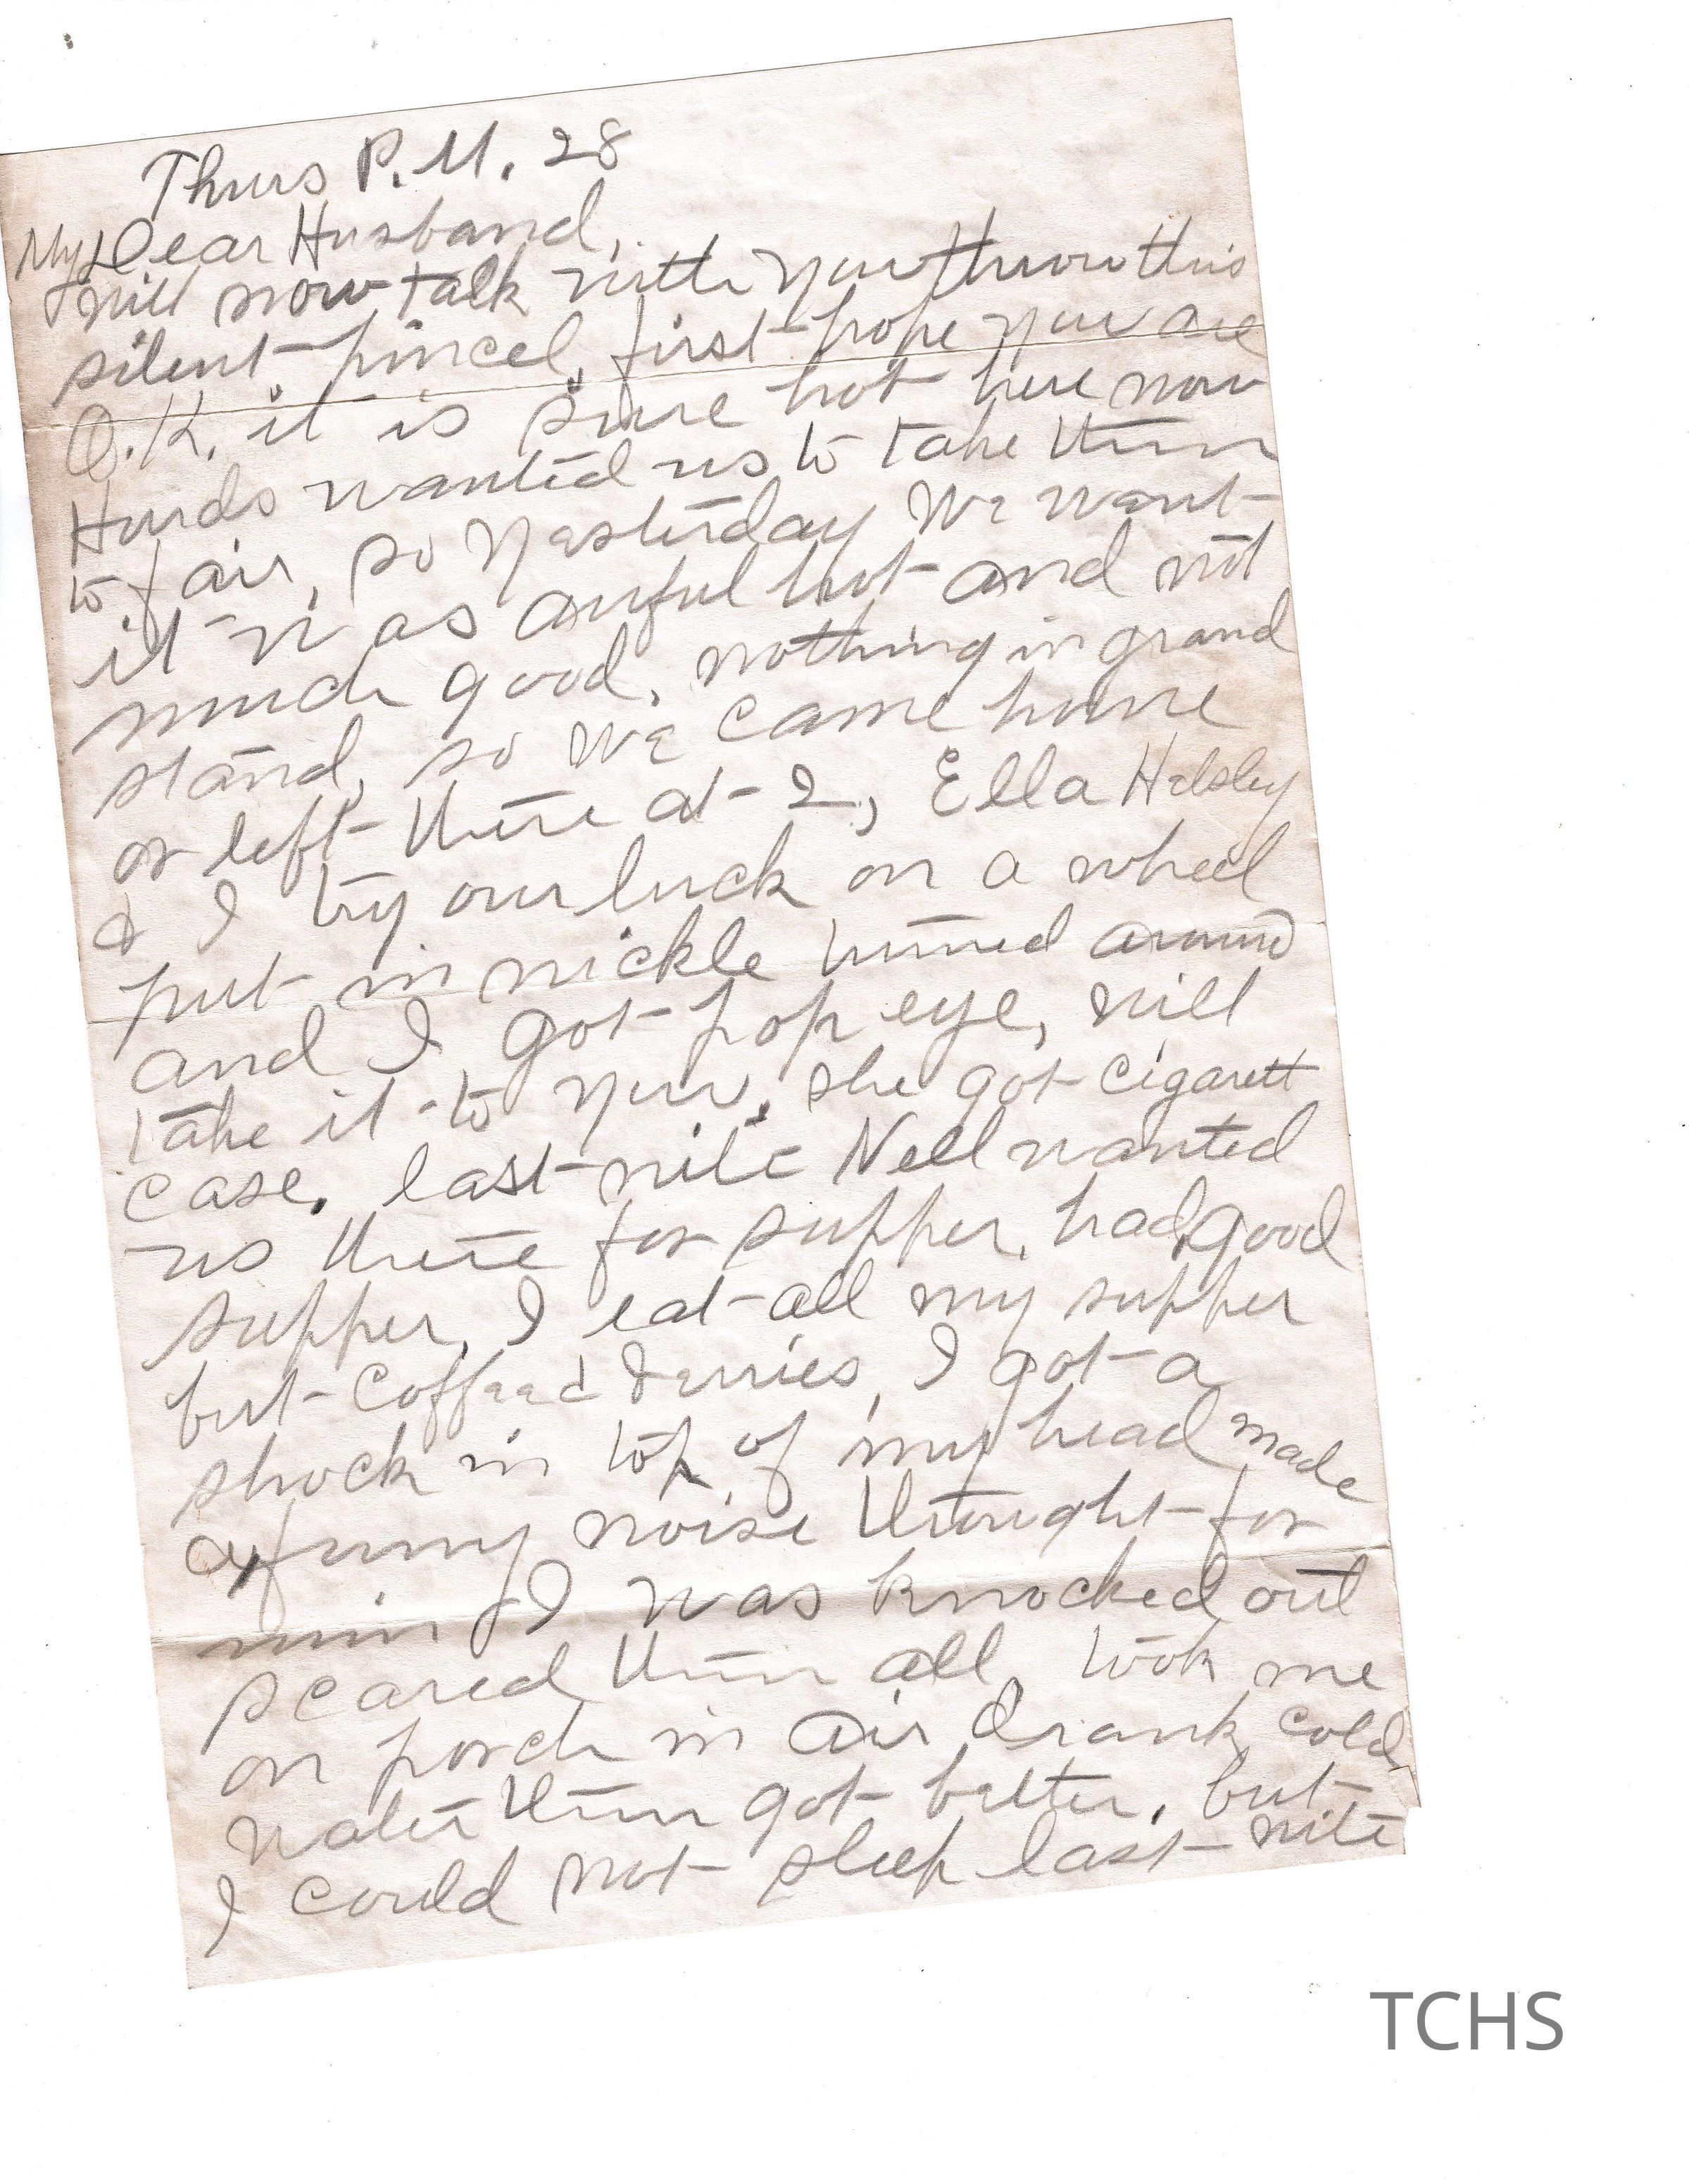 Thurs P.M. 28
My Dear Husband,
will now talk with you throw this
silent pincel, first hope you are
O.K. it is sure hot here now
Hurds wanted us to take them
to fair, so yesterday we want
it was awful hot and not
much good, nothing in grand
stand, so we came home
or left there at 2, Ella Halsley
& I try our luck on a wheel
put in nickle turned around
and I got pop eye, will
take it to you, she got cigarett
case. last nite Nell wanted
us there for supper, had good
supper, I eat all my supper
but coffee & berries, I got a
shock in top of my head made
a funny noise thought for
min I was knocked out
scared them all, took me
on porch in air, drank cold
water then got better, but
I could not sleep last nite
TCHS